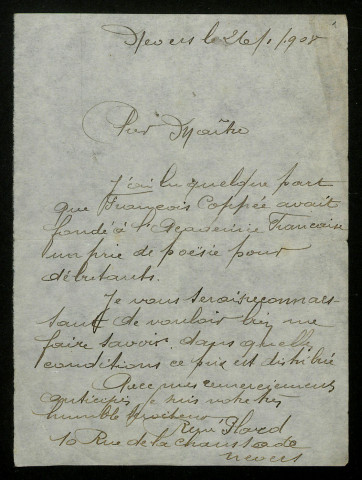 1
Nevers le 26/1/908
Cher Maître
J'ai lu quelque part
que François Coppée avait
fondé à l'Academie Francaise
un prix de poësie pour
débutants.
Je vous serais reconnais-
sant de vouloir bien me
faire savoir dans quelles
conditions ce prix est distribué
Avec mes remerciements
anticipés, je suis votre très
humble serviteur
10 Rue de la Chaussade
Nevers